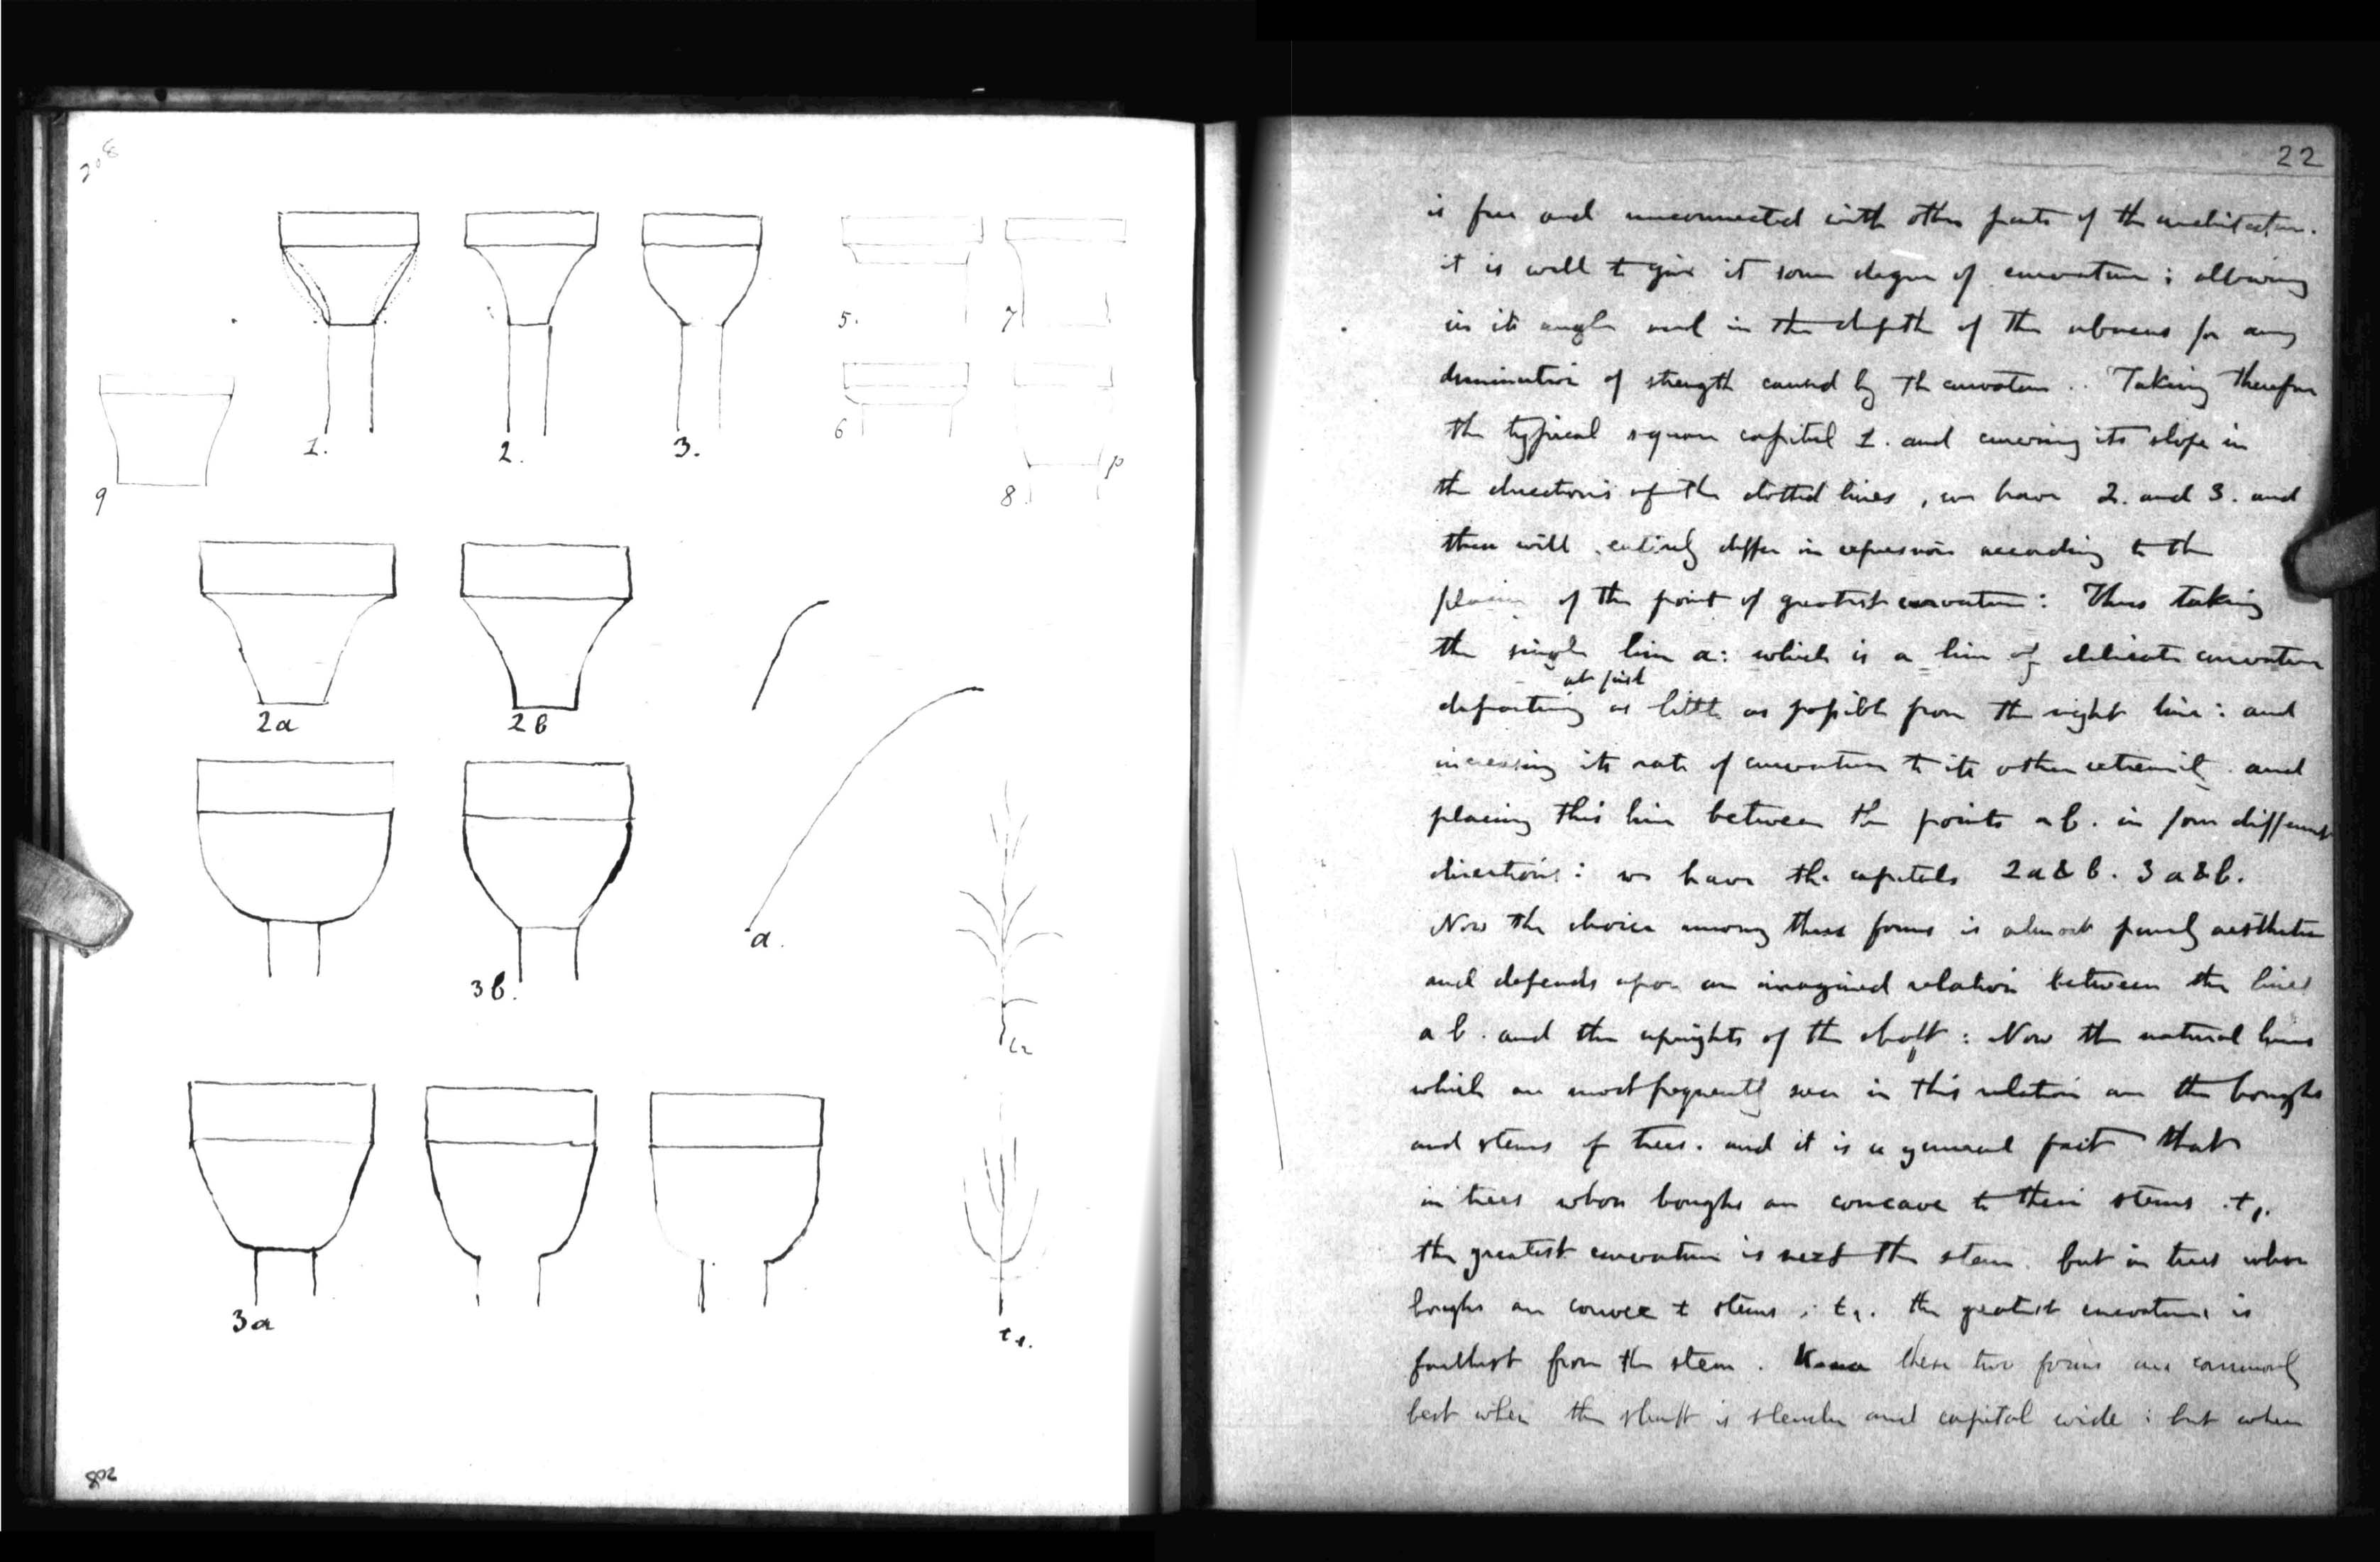 208
1.
2.
3.
5.
7
6
8
p
9
2a
2b
a.
3b.
t2
3a
t1.
802
22
is free and unconnected with other parts of the architecture.
it is well to give it some degree of curvature : allowing
in its angle and in the depth of the abacus for any
diminution of strength caused by the curvature .. Taking therefore
the typical square capital 1. and curving its slope in
the directions of the dotted lines , we have 2. and 3. and
these will entirely differ in expression according to the
placing of the point of greatest curvature : Thus taking
the single line a: which is a line of delicate curvature
at first
departing as little as possible from the right line : and
increasing its rate of curvature to its other extremity . and
placing this line between the points a b . in four different
directions : we have the capitals 2 a & b . 3 a & b .
Now the choice among these forms is almost purely aesthetic
and depends upon an imagined relation between the lines
a b . and the uprights of the shaft : Now the natural lines
which are most frequently seen in this relation are the boughs
and stems of trees . and it is a general fact that
in trees whose boughs are concave to their stems . t1.
the greatest curvature is next the stem . but in trees whose
boughs are convex to stems ; t2 . the greatest curvature is
farthest from the stem . these two forms are commonly
best when the shaft is slender and capital wide : but when